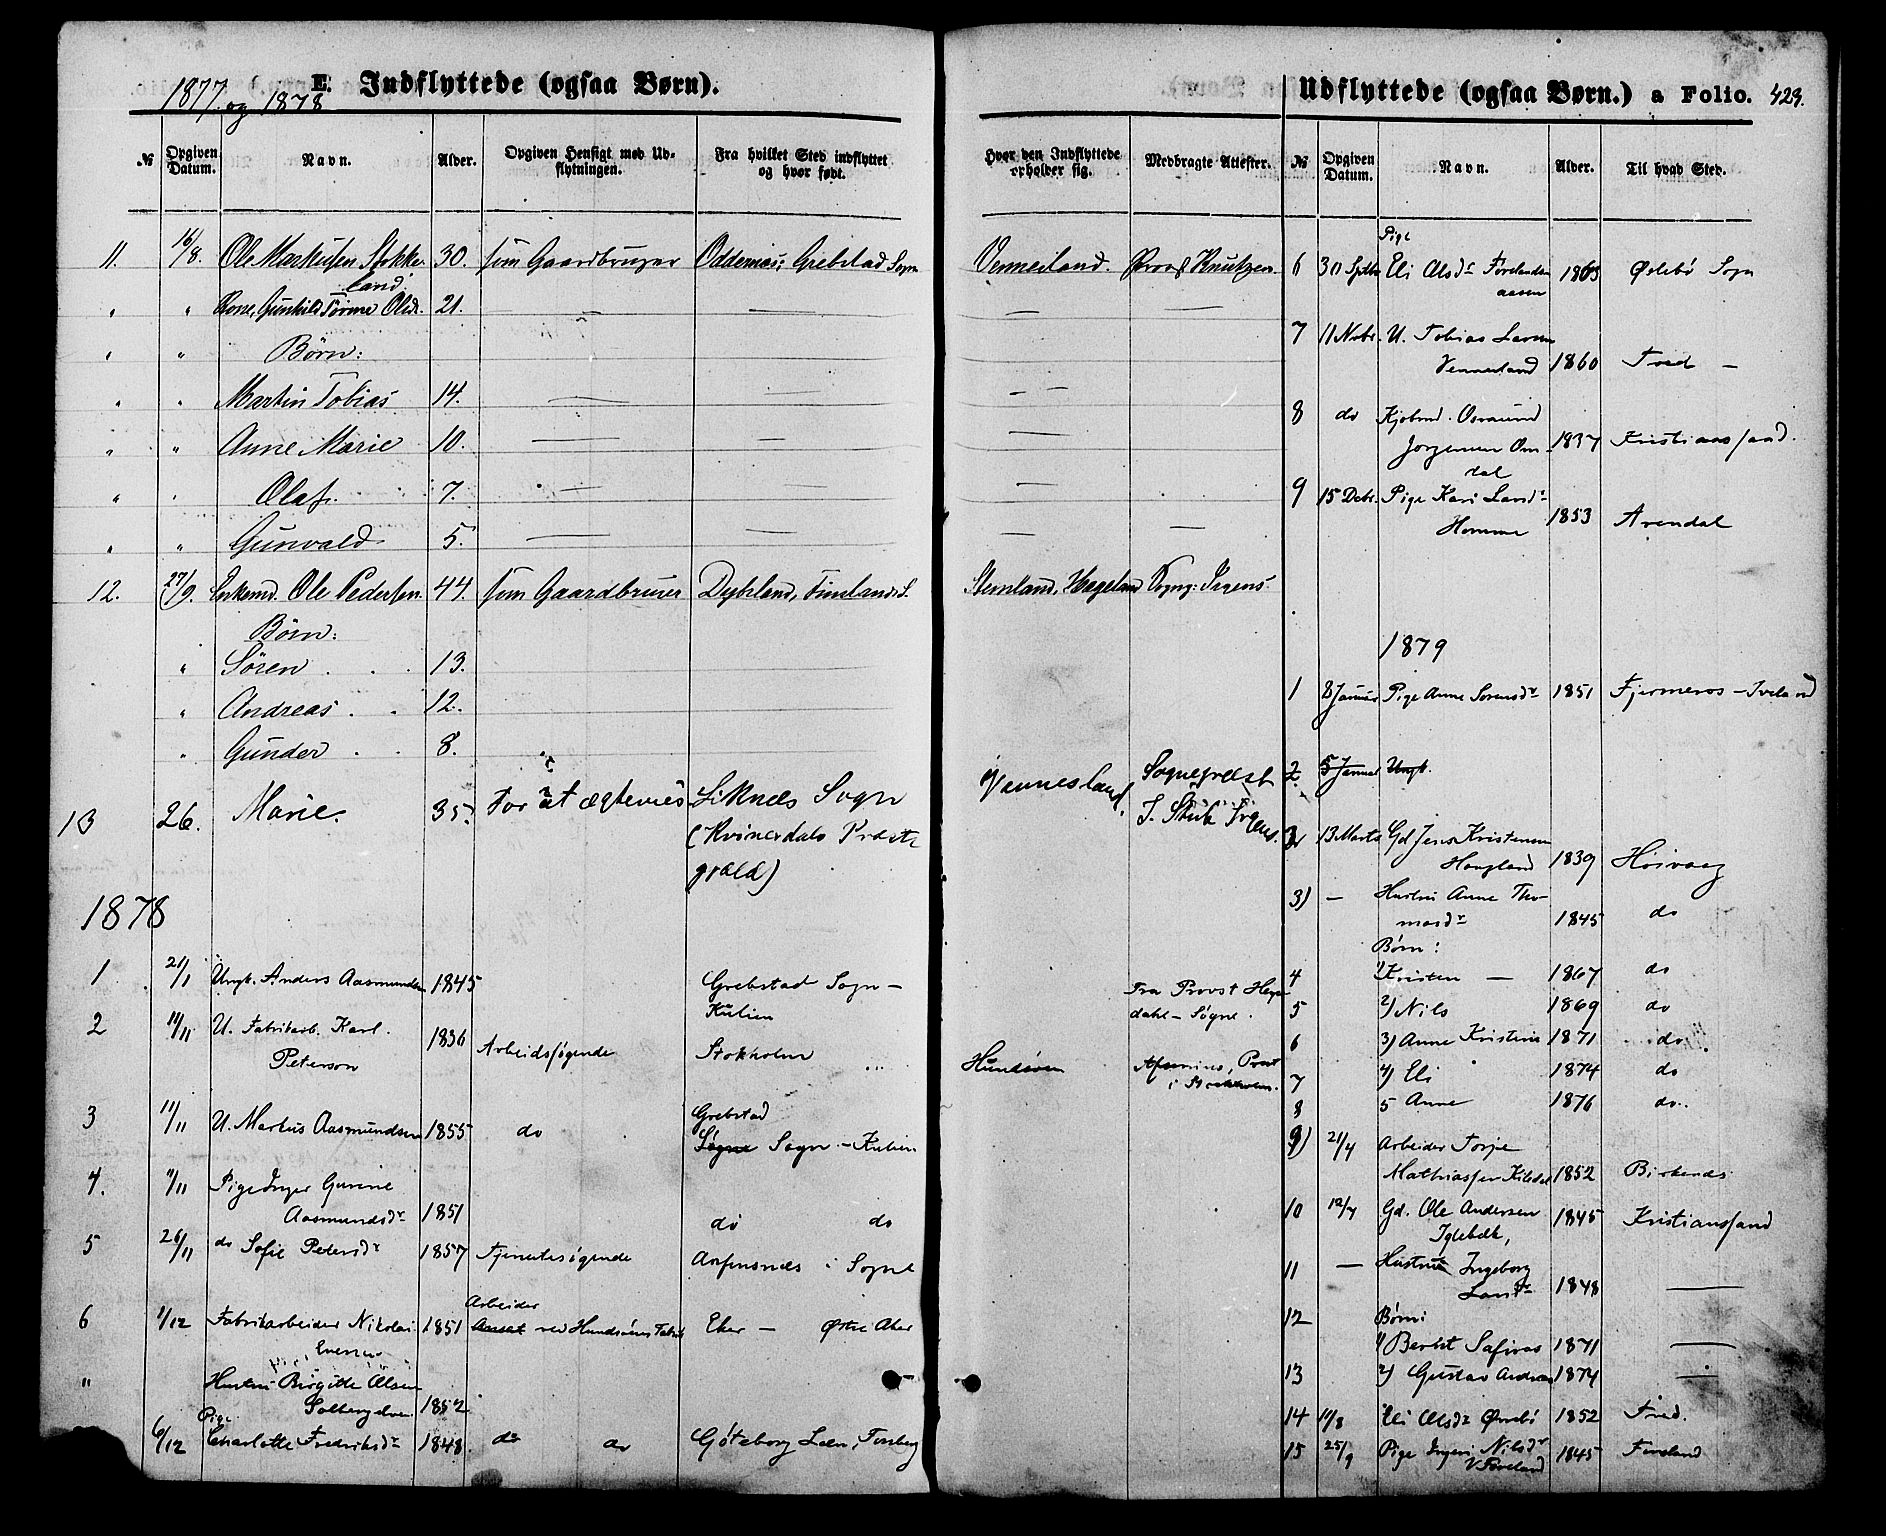 1877 og 1878
E. Indflyttede (ogsaa Børn).
№ Opgiven Datum. Navn. Alder. Opgiven Hensigt med Udflytningen. Fra hvilket Sted indflyttet og hvor født.
11. 16/8. Ole Markusen Stokke- 30. som Gaardbruger Oddernes; Grebstad Sogn
land.
" " Kone, Gunhild Tørine Olsdr. 21. — —
" " Børn:
" " Martin Tobias 14. — —
" " Anne Marie 10. — —
" " Olaf. 7. — —
" " Gunvald 5. — —
12. 27/9. Enkemd. Ole Pedersen. 44. som Gaardbruger Dybeland, Finslands S.
Børn:
" Sören 13.
" Andreas 12.
" Gunder 8. "
13 26. Marie 35. For at ægtevies Liknæs Sogn
(Kvinesdals Præste
gjæld)
1878
1 21/1 Ungk. Anders Aasmundsen 1845 Grebstad Sogn –
Kulien
2 11/11 U. Fabrikarb. Karl 1836 Arbeidssøgende Stokholm
Peterson
3 11/11 U. Markus Aasmundsen 1855 do Grebstad
Søgne Sogn – Kulien
4. 11/11 Pige Inger Gurine
Aasmundsdr 1851 do do
5 26/11 do Sofie Petersdr 1857 Tjenestesøgende i Sogne
6 1/12 Fabrikarbeider Nikolai 1851 Arbeider
Ansat ved Hunsøens Fabrik Eker — Østre Aker
Evensen
" Hustru Birgitte Olsen
Solbergelven 1852
6/12 Pige
Charlotte Fredriksdr 1848. do do Göteborg Læn,
Udflyttede (ogsaa Børn.) a Folio. 429.
Hvor den Indflyttede opholder sig. Medbragte Attester. № Opgiven Datum. Navn. Alder. Til hvad Sted.
Vennesland. Provst Knutzen.
— —
—
—
—
—
—
Stemland, Hægeland Sogng: Irgens.
Vennesland. Sognepræst
J. Stub Irgens.
Fra Provst Heyer-
dahl – Søgne.
Hunsøen Præst
i Stockholm.
Pige
6 30 Septbr Eli Olsdr Frøelands- 1863 Øslebø Sogn
aasen
7 11 Novbr. U. Tobias Larsen
Vennesland 1860 Tved –
8 do Kjøbmd. Osmund
Jørgensen Om- 1837 Kristianssand.
dal
9 15 Decbr. Pige Kari Larsdr
Homme 1853 Arendal
1879
1 8 Januar Pige Anne Sørensdr 1851 Fjermeros – Iveland
2 5 Januar Ungk.
2 13 Marts Gd Jens Kristensen
Hougland 1839 Høivaag
3) — Hustru Anne Tho-
masdr 1845 do
Børn:
4 1) Kristen — 1867 do
5 2) Nils 1869 do
6 3) Anne Kristine 1871 do
7 4) Eli 1874 do
8 5 Anne 1876 do
9) 21/4 Arbeider Torje
Mathiassen Kilsdal 1852 Birkenes
10 12/4 Gd. Ole Andersen
Iglebæk, 1845 Kristianssand
11 — Hustru Ingeborg
Larsdr 1848 —
12 Børn:
1) Berht 1871 —
13 2) Gustav Andreas 1874 —
14 11/8 Eli Olsdr Øvrebø 1852 Tved.
15 25/9 Pige Ingeri Nilsdr
V. Frøeland 1845